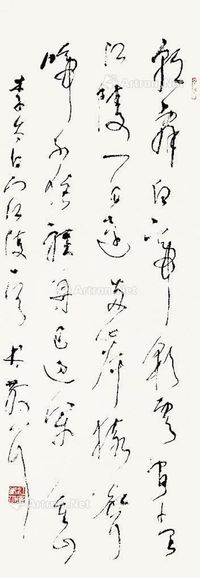 朝辭白帝彩雲間千里
江陵一日還兩岸猿聲
啼不住輕舟已過萬重山
李太白下江陵一首 散耳
Artron.Net